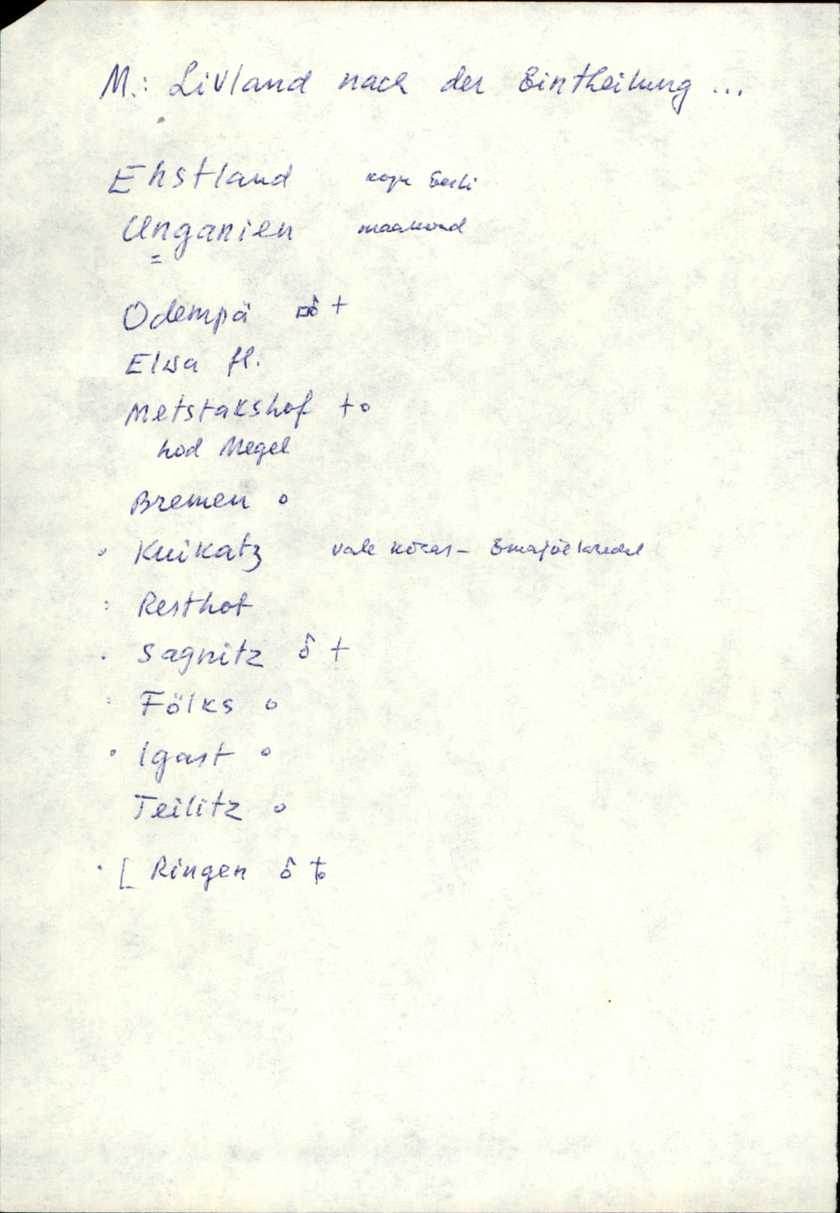 M.: Livland nach der Eintheilung ...
Ehstland kogu Eesti
Unganien maakond
Odempä +
Elwa fl.
Metstakshof +o
hod Megel
Bremen o
Kuikatz vale kõcas - Emajõe kaldal
Resthof
Sagnitz ô +
Fölks o
Igast o
Teilitz o
[ Ringen ô +o